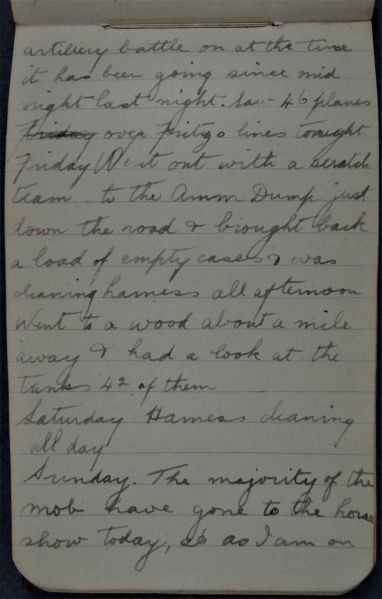 artillery battle on at the time
it has been going since mid
night last night. Saw 46 planes
Friday over Fritys lines tonight
Friday Went out with a scratch
team to the Amm Dump just
down the road & brought back
a load of empty cases & was
cleaning harness all afternoon
Went to a wood about a mile
away & had a look at the
tanks 42 of them
Saturday Harness cleaning
all day
Sunday. The majority of the
mob have gone to the horse
show today, as I am on